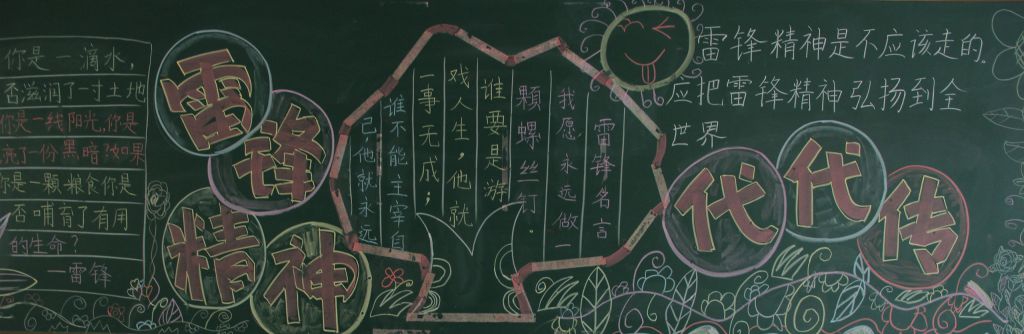 你是一滴水，
否滋润了一寸土地
你是一线阳光，你是
亮了一份黑暗？如果
你是一颗粮食你是
否哺育了有用
的生命？
—雷锋
雷锋
精神
雷锋名言
我愿永远做一
顆螺丝钉.
谁要是游
戏人生，他就
一事无成；
谁不能主宰自
己，他就永远
雷锋精神是不应该走的.
应把雷锋精神弘扬到全
世界
代代传